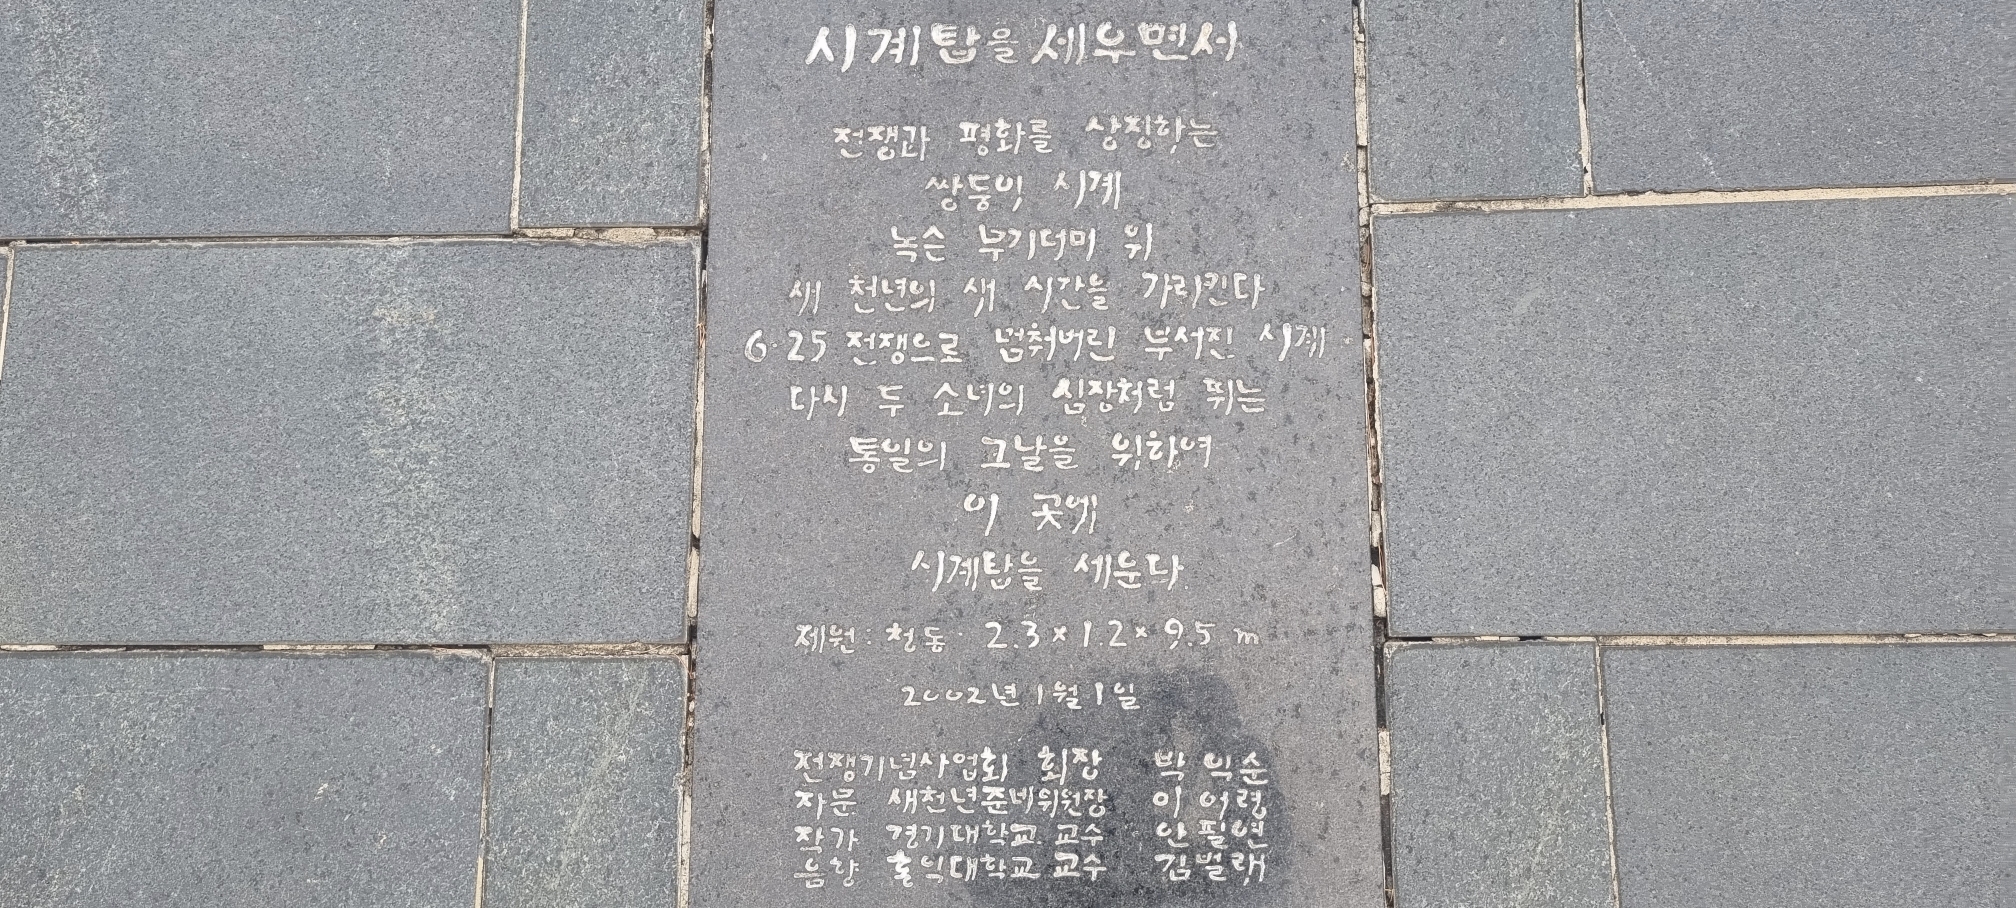 시계탑을 세우면서
전쟁과 평화를 상징하는
쌍둥이 시계
녹슨 무기더미 위
새 천년의 새 시간을 가리킨다
6·25 전쟁으로 멈춰버린 부서진 시계
다시 두 소녀의 심장처럼 뛰는
통일의 그날을 위하여
이 곳에
시계탑을 세운다
제원: 청동· 2.3×1.2×9.5 m
2002년 1월 1일
전쟁기념사업회 회장 박 익순
자문 새천년준비위원장 이 어령
작가 경기대학교 교수 안필연
음향 홍익대학교 교수 김벌래